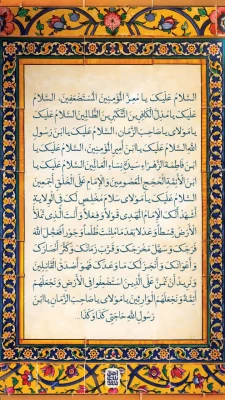 السَّلامُ عَلَيْكَ يا مُعِزَّ المُؤْمِنينَ المُسْتَضْعَفينَ، السَّلامُ
عَلَيْكَ يا مُذِلَّ الكافِرينَ المُتَكَبِّرينَ الظّالِمينَ السَّلامُ عَلَيْكَ
يا مَوْلايَ يا صاحِبَ الزَّمانِ، السَّلامُ عَلَيْكَ يا ابْنَ رَسُولِ
اللهِ السَّلامُ عَلَيْكَ يا ابْنَ أَميرِ المُؤْمِنينَ، السَّلامُ عَلَيْكَ يا
ابْنَ فاطِمَةَ الزَّهْراءِ سَيِّدَةِ نِساءِ العالَمينَ السَّلامُ عَلَيْكَ يا
ابْنَ الأَئِمَّةِ الحُجَجِ المَعْصُومينَ وَالإِمامَ عَلَى الخَلْقِ أَجْمَعينَ
السَّلامُ عَلَيْكَ يا مَوْلايَ سَلامَ مُخْلِصٍ لَكَ فِي الوِلايَةِ
أَشْهَدُ أَنَّكَ الإِمامُ المَهْدِيُّ قَوْلاً وَفِعْلاً وَأَنْتَ الَّذي تَمْلَأُ
الأَرْضَ قِسْطاً وَعَدْلاً بَعْدَ ما مُلِئَتْ ظُلْماً وَجَوْراً فَعَجَّلَ اللهُ
فَرَجَكَ وَسَهَّلَ مَخْرَجَكَ وَقَرَّبَ زَمانَكَ وَكَثَّرَ أَنْصارَكَ
وَأَعْوانَكَ وَأَنْجَزَ لَكَ ما وَعَدَكَ فَهُوَ أَصْدَقُ القائِلينَ
وَنُريدُ أَنْ نَمُنَّ عَلَى الَّذينَ اسْتُضْعِفُوا فِي الأَرْضِ وَنَجْعَلَهُمْ
أَئِمَّةً وَنَجْعَلَهُمُ الوارِثينَ يا مَوْلايَ يا صاحِبَ الزَّمانِ يا ابْنَ
رَسُولِ اللهِ حاجَتي كَذا وَكَذا...